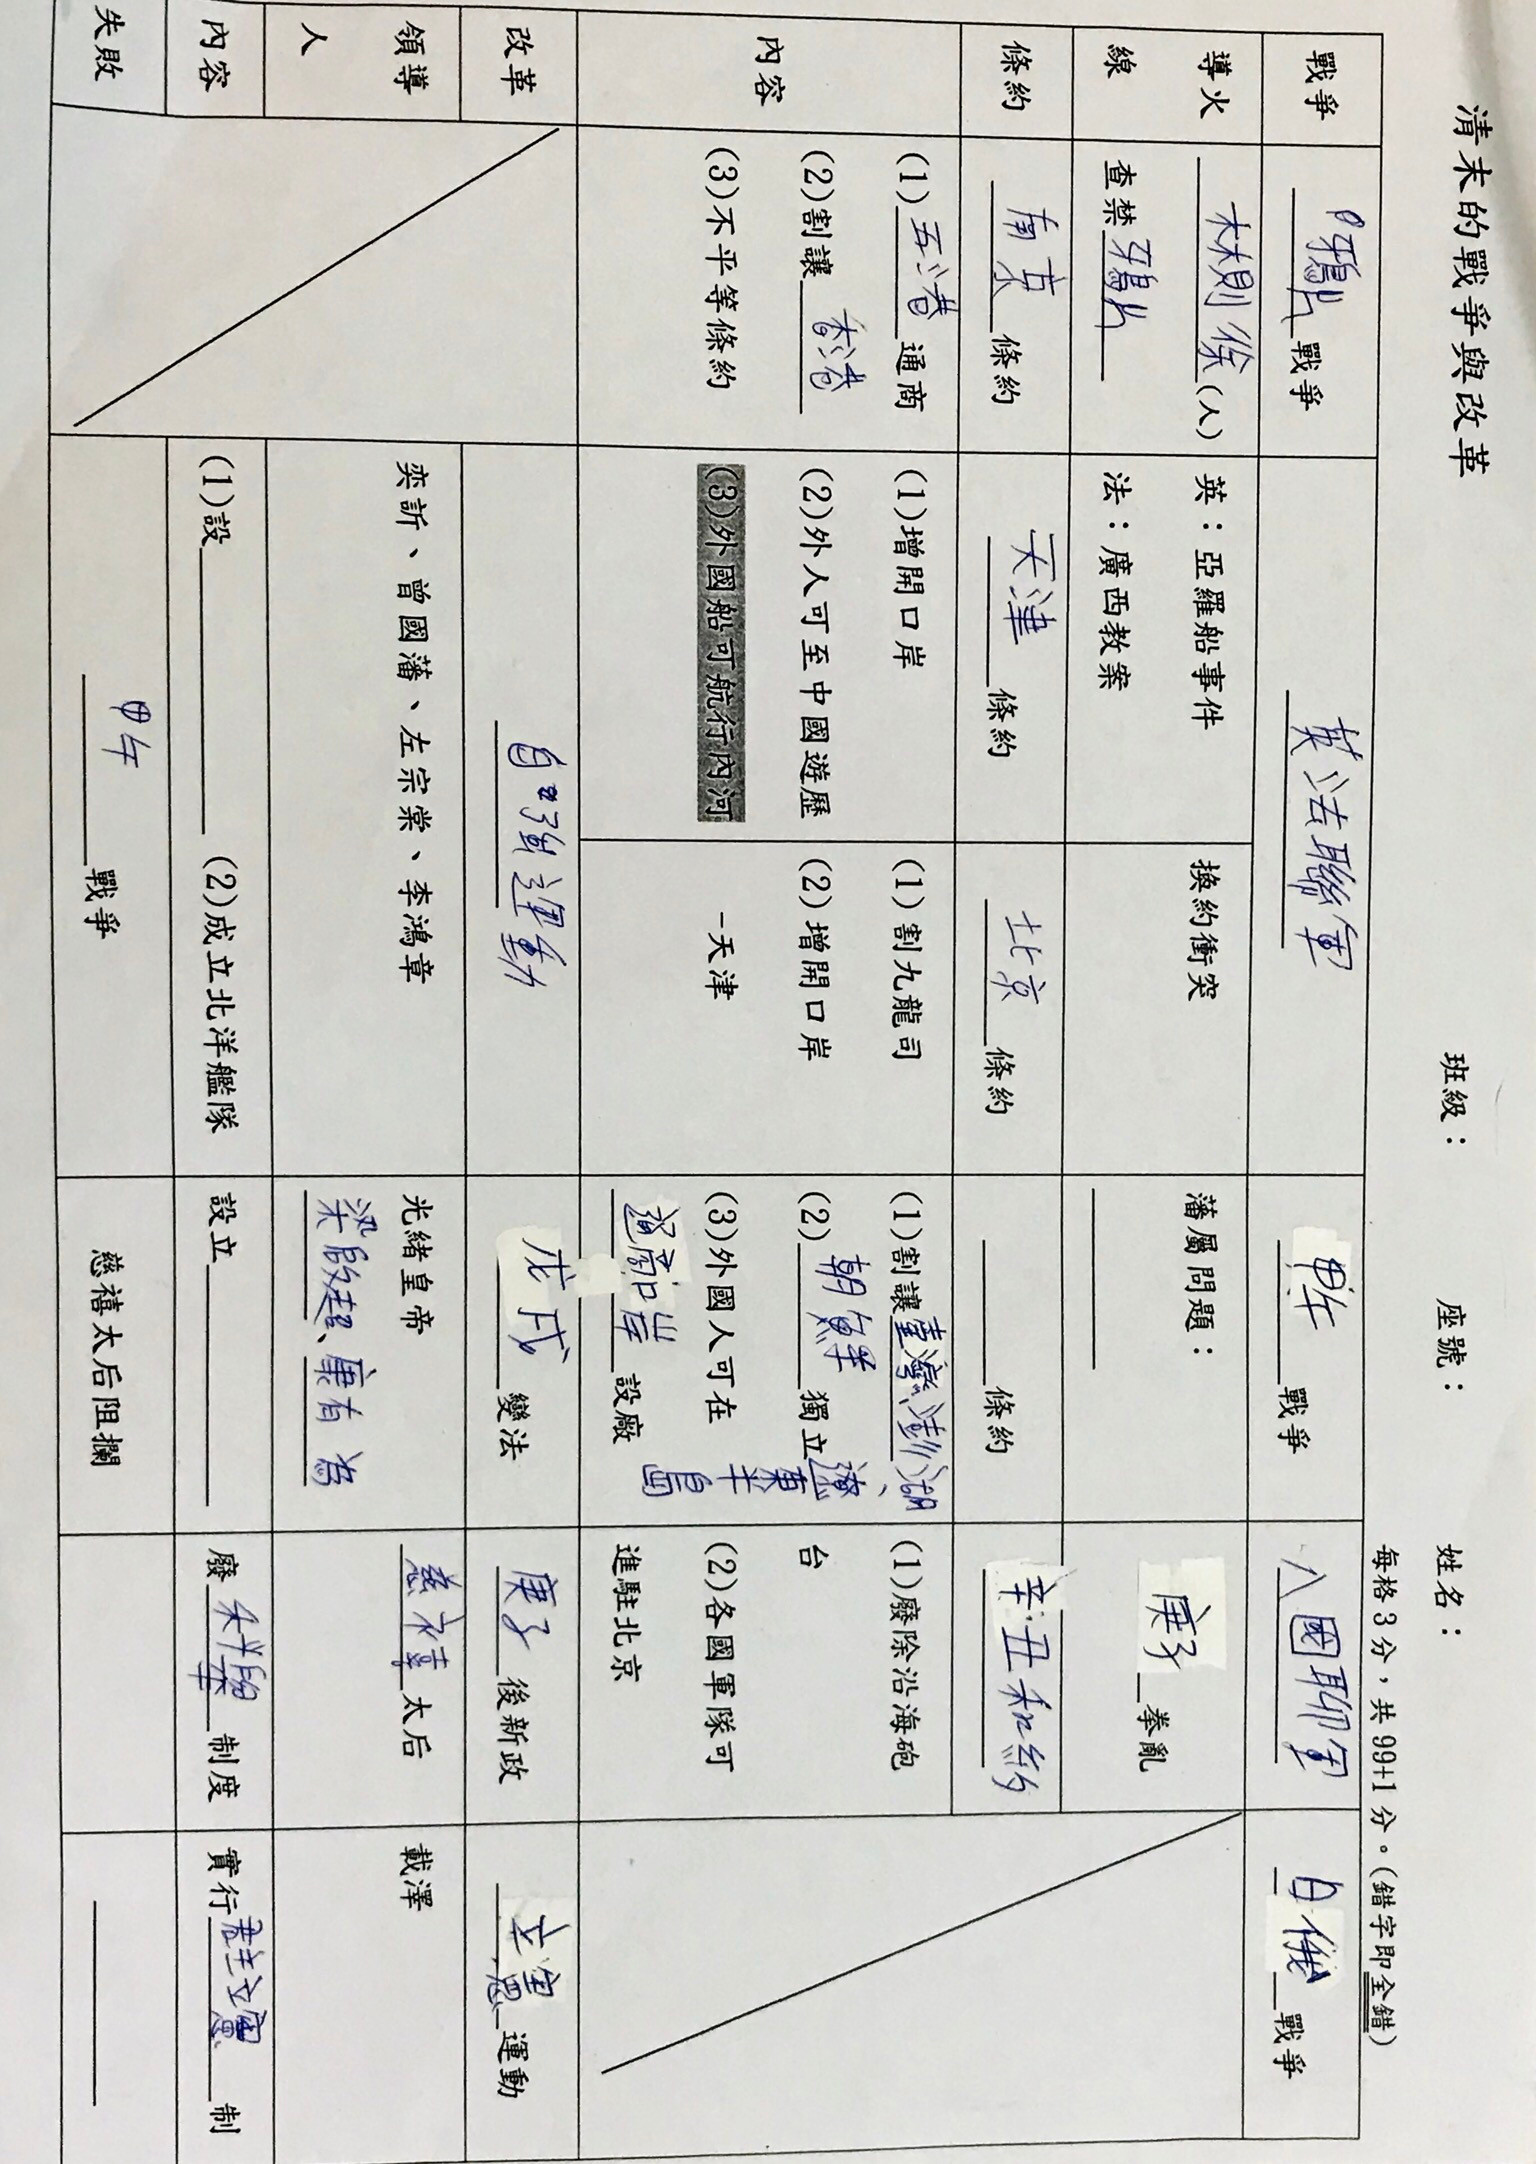 清末的戰爭與改革 班級： 座號： 姓名：
每格3分，共99+1分。(錯字即全錯)
戰爭 鴉片戰爭 英法聯軍 甲午戰爭 八國聯軍 日俄戰爭
導火線 林則徐(人)查禁鴉片 英：亞羅船事件 法：廣西教案 換約衝突 藩屬問題： 庚子拳亂
條約 南京條約 天津條約 北京條約 條約 辛丑和約
內容
(1)五港通商
(2)割讓香港
(3)不平等條約
(1)增開口岸
(2)外人可至中國遊歷
(3)外國船可航行內河
(1)割九龍司
(2)增開口岸
-天津
(1)割讓臺灣、澎湖、遼東半島
(2)朝鮮獨立
(3)外國人可在
通商口岸設廠
(1)廢除沿海砲
台
(2)各國軍隊可
進駐北京
改革 自強運動 戊戌變法 庚子後新政 立憲運動
領導人 奕訢、曾國藩、左宗棠、李鴻章 光緒皇帝 梁啟超、康有為 慈禧太后 載澤
內容 (1)設 (2)成立北洋艦隊 設立 廢科舉制度 實行君主立憲制
失敗 甲午戰爭 慈禧太后阻攔